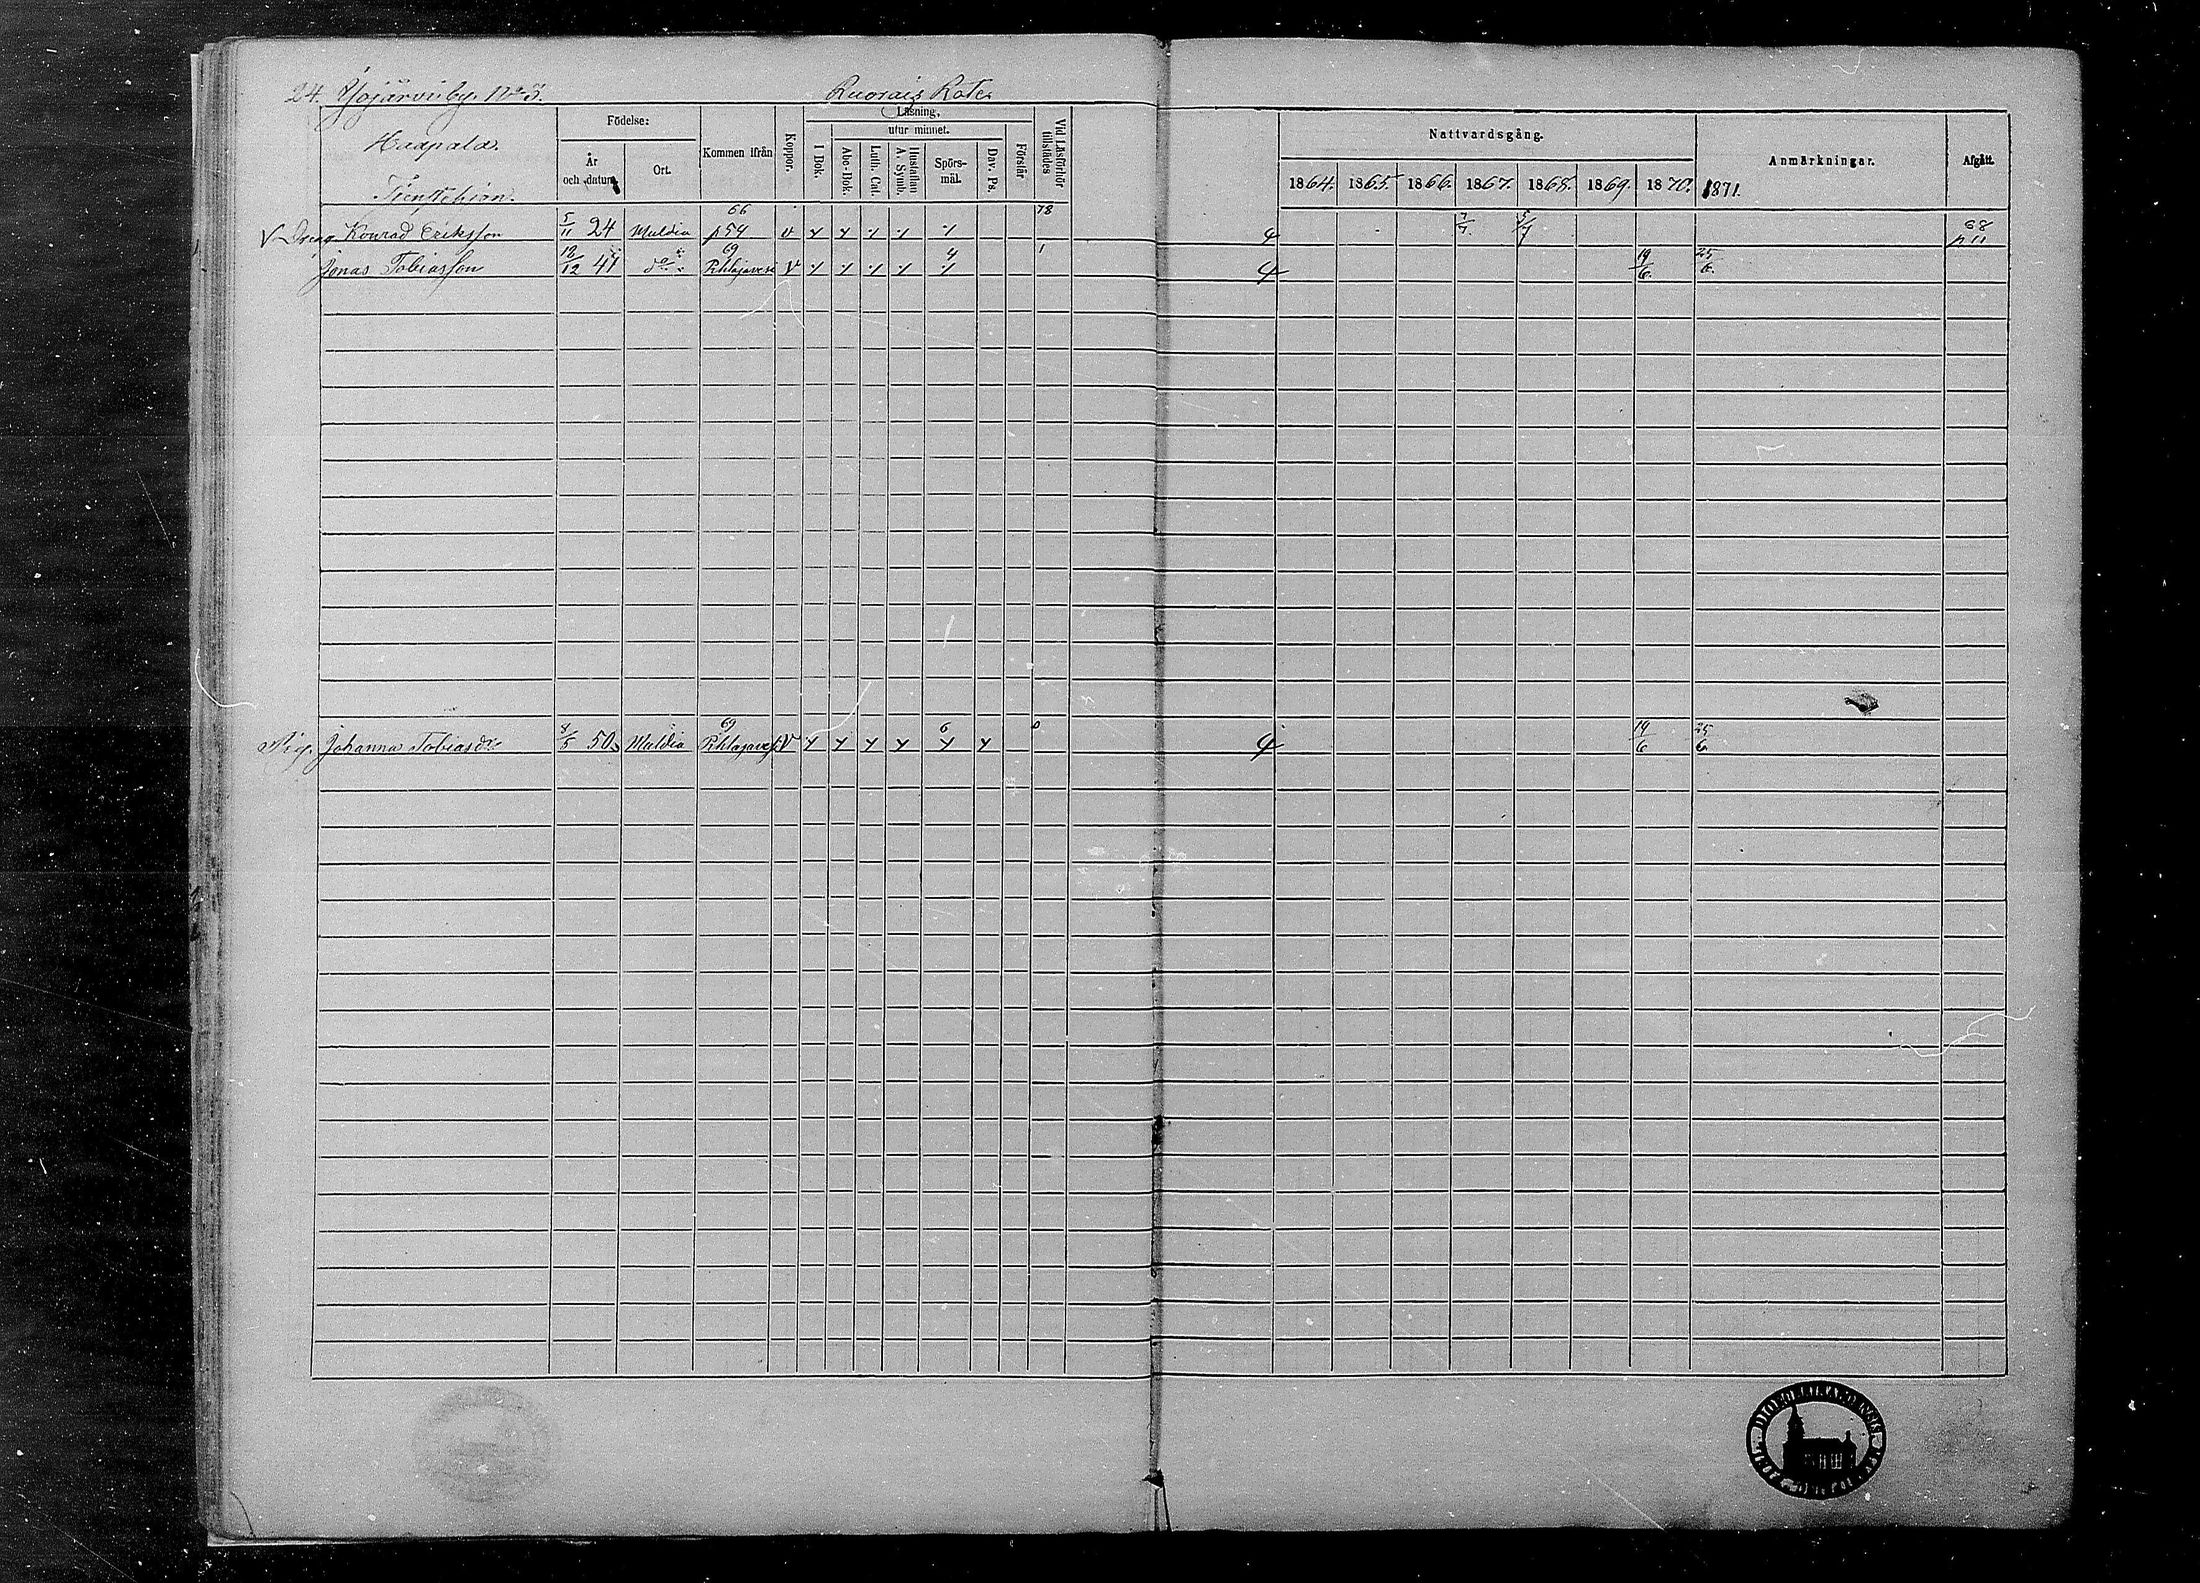 24. Yojärvi by. No 3. Ruorais Rote
Haapala.
Tjenstehion.
Födelse:
År och datum.
Ort.
Kommen ifrån
Koppor.
Läsning,
utur minnet.
I Bok.
Abc-Bok.
Luth. Cat.
Hustaflan A. Symb.
Spörs-mål.
Dav. Ps.
Förstår
Vid Läsförhör tillstädes
Nattvardsgång.
1864. 1865. 1866. 1867. 1868. 1869. 1870. 1871.
Anmärkningar.
Afgått.
V Dreng Konrad Eriksson 5/11 24 Muldia 66 p 54 v 78 4 7/7 5/7 68 p 11
Jonas Tobiasson 12/12 41 do 69 Pihlajavesi V 4 1 4 19/6 25/6.
Pig. Johanna Tobiasdr 8/5 50 Muldia 69 Pihlajavesi V 6 0 4 19/6 25/6